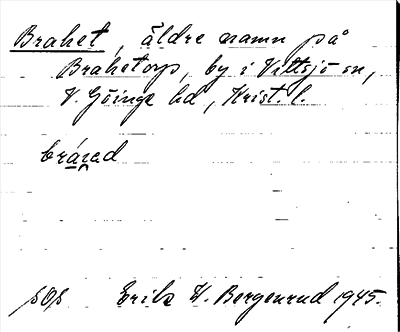 Brahet, äldre namn på
Brahetorp, by i Vittsjö sn,
V. Göinge hd, Krist. l.
bráɹ̯ed
sOs Erik W. Bergenrud 1945.